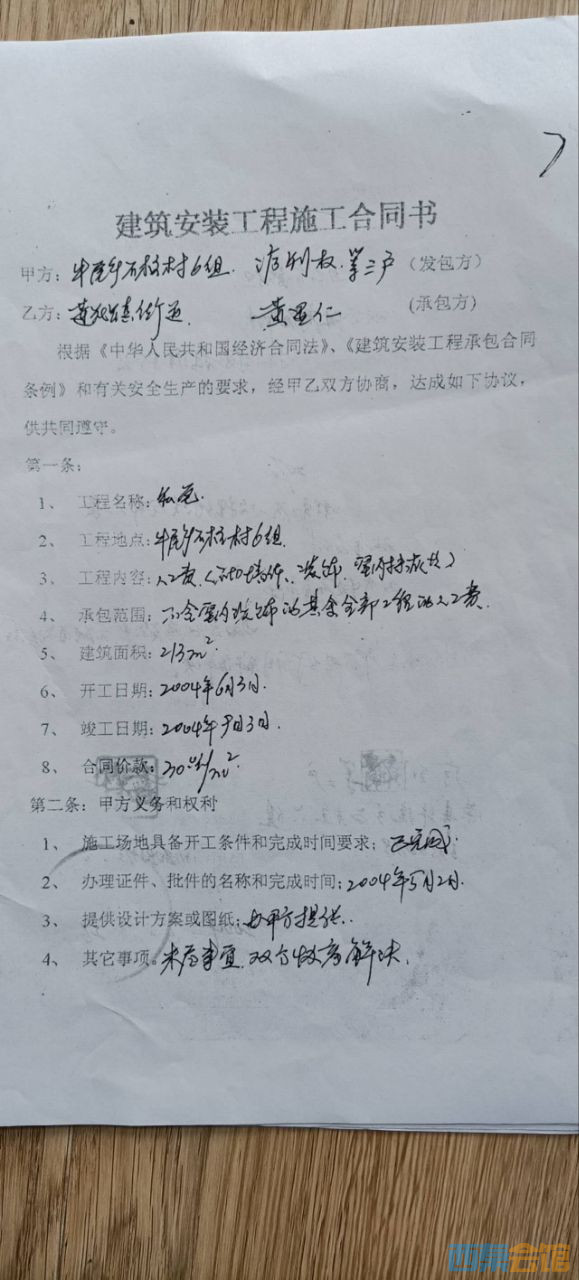 建筑安装工程施工合同书
甲方：牛尾乡石柱村6组. 第三户（发包方）
乙方： 黄置仁 （承包方）
根据《中华人民共和国经济合同法》、《建筑安装工程承包合同
条例》和有关安全生产的要求，经甲乙双方协商，达成如下协议，
供共同遵守。
第一条：
1、 工程名称：
2、 工程地点：牛尾乡石柱村6组.
3、 工程内容：人工费
4、 承包范围：不含室内装饰的其余全部工程的人工费.
5、 建筑面积：213m².
6、 开工日期：2004年6月3日.
7、 竣工日期：2004年9月3日.
8、 合同价款：
第二条：甲方义务和权利
1、 施工场地具备开工条件和完成时间要求：已完成.
2、 办理证件、批件的名称和完成时间：2004年5月2日.
3、 提供设计方案或图纸：由甲方提供.
4、 其它事项。未尽事宜.双方協商解决.
西祠会馆